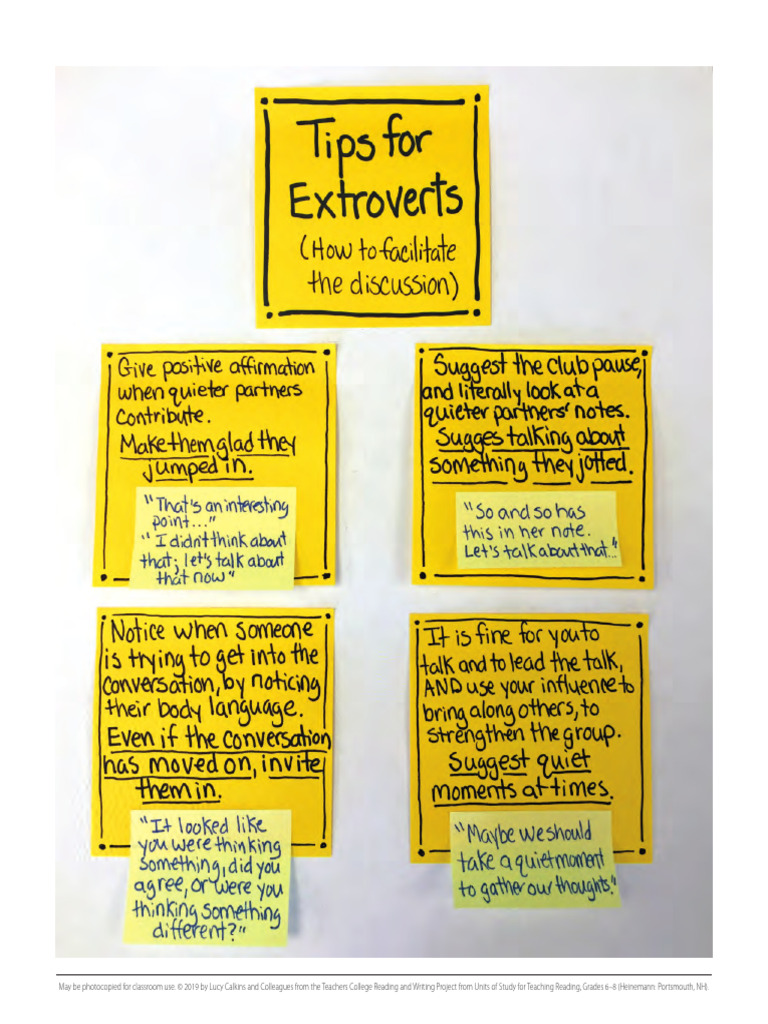 Tips for
Extroverts
(How to facilitate
the discussion)
Give positive affirmation
when quieter partners
contribute.
Make them glad they
jumped in.
"That's an interesting
point..."
"I didn't think about
that; let's talk about
that now"
Suggest the club pause,
and literally look at a
quieter partners' notes.
Sugges talking about
something they jotted.
"So and so has
this in her note.
Let's talk about that..."
Notice when someone
is trying to get into the
conversation, by noticing
their body language.
Even if the conversation
has moved on, invite
them in.
"It looked like
you were thinking
something, did you
agree, or were you
thinking something
different?"
It is fine for you to
talk and to lead the talk,
AND use your influence to
bring along others, to
strengthen the group.
Suggest quiet
moments at times.
"Maybe we should
take a quiet moment
to gather our thoughts."
May be photocopied for classroom use. © 2019 by Lucy Calkins and Colleagues from the Teachers College Reading and Writing Project from Units of Study for Teaching Reading, Grades 6–8 (Heinemann: Portsmouth, NH).